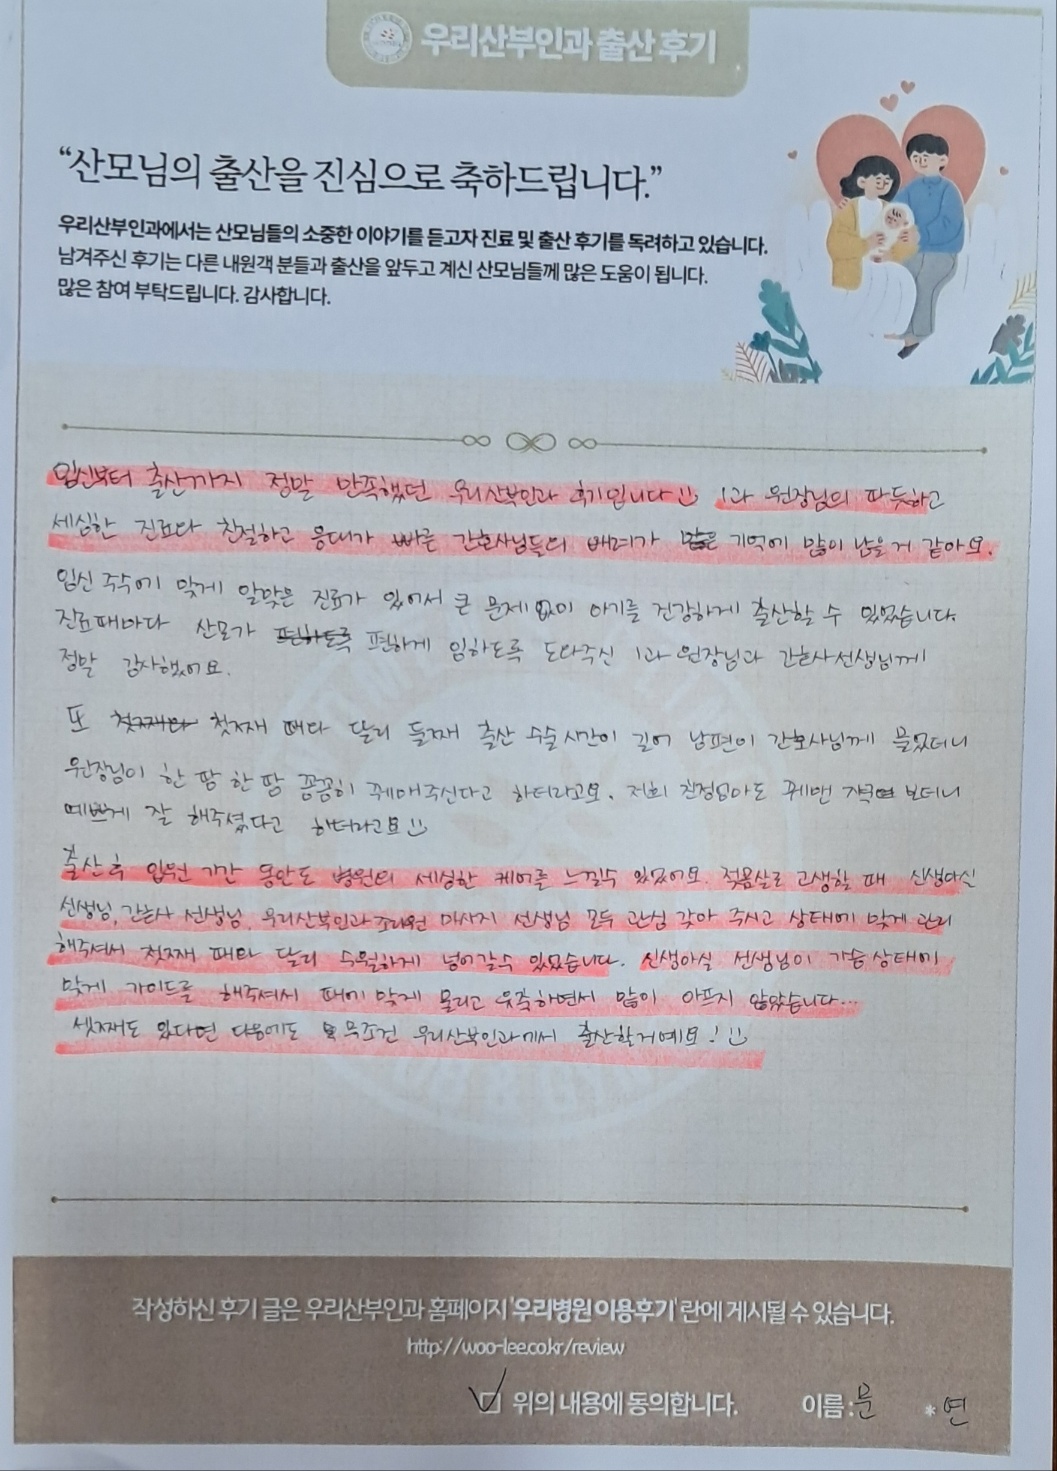 우리산부인과 출산 후기
“산모님의 출산을 진심으로 축하드립니다.”
우리산부인과에서는 산모님들의 소중한 이야기를 듣고자 진료 및 출산 후기를 독려하고 있습니다.
남겨주신 후기는 다른 내원객 분들과 출산을 앞두고 계신 산모님들께 많은 도움이 됩니다.
많은 참여 부탁드립니다. 감사합니다.
임신부터 출산까지 정말 만족했던 우리산부인과 후기입니다 1과 원장님의 따뜻하고
세심한 진료와 친절하고 응대가 빠른 간호사님들의 배려가 기억에 많이 남을거 같아요.
임신 주수에 맞게 알맞은 진료가 있어서 큰 문제 없이 아기를 건강하게 출산할 수 있었습니다.
진료때마다 산모가 편하게 임하도록 도와주신 1과 원장님과 간호사선생님께
정말 감사했어요.
또 첫째 때와 달리 둘째 출산 수술시간이 길어 남편이 간호사님께 물었더니
원장님이 한 땀 한 땀 꼼꼼히 꿰매주신다고 하더라고요. 저희 친정엄마도 꿰맨 자국 보더니
예쁘게 잘 해주셨다고 하더라고요
출산 후 입원 기간 동안도 병원의 세심한 케어를 느낄수 있었어요. 젖몸살로 고생할 때 신생아실
선생님, 간호사 선생님, 우리산부인과조리원 마사지 선생님 모두 관심 갖아 주시고 상태에 맞게 관리
해주셔서 첫째 때와 달리 수월하게 넘어갈수 있었습니다. 신생아실 선생님이 가슴상태에
맞게 가이드를 해주셔서 때에 맞게 물리고 유축하면서 많이 아프지 않았습니다...
셋째도 있다면 다음에도 무조건 우리산부인과에서 출산할거예요!
작성하신 후기 글은 우리산부인과 홈페이지 '우리병원 이용후기' 란에 게시될 수 있습니다.
http://woo-lee.co.kr/review
위의 내용에 동의합니다. 이름 : 문 * 연